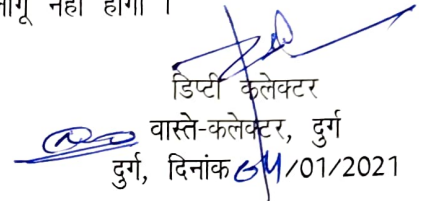 लागू नहीं होगा ।
डिप्टी कलेक्टर
वास्ते-कलेक्टर, दुर्ग
दुर्ग, दिनांक 04/01/2021